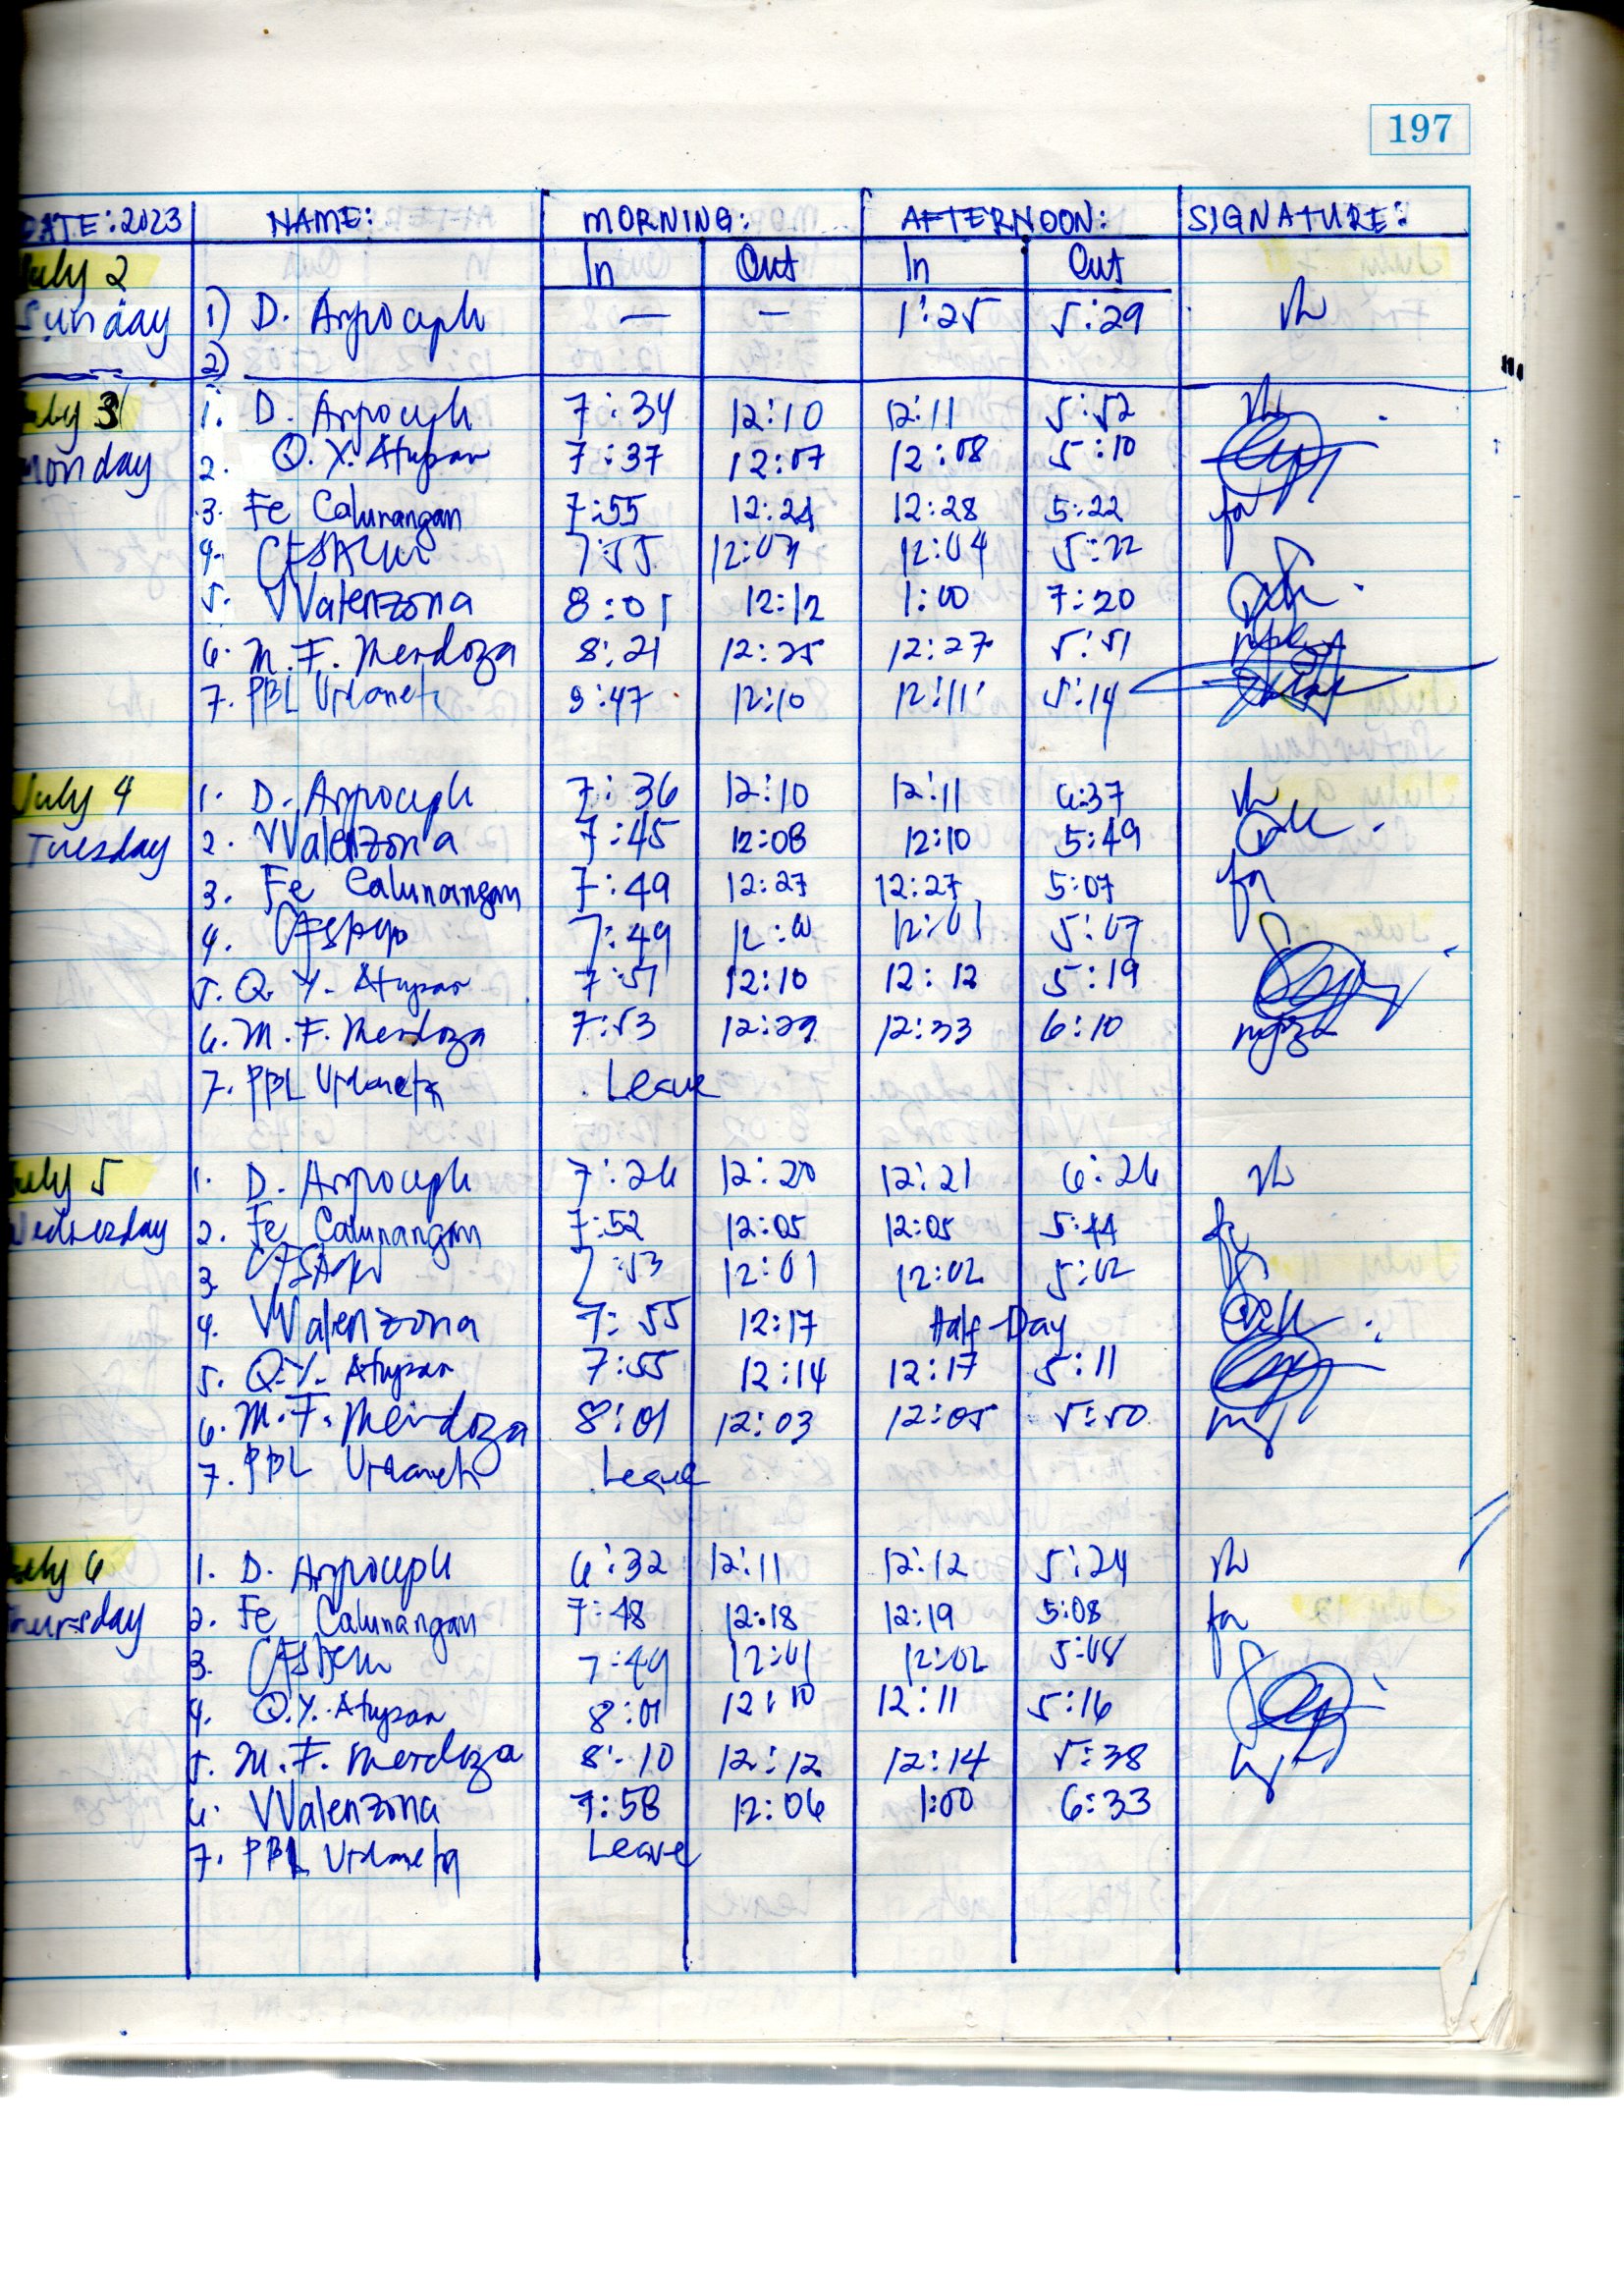 197
DATE: 2023 NAME: MORNING: AFTERNOON: SIGNATURE:
In Out In Out
July 2
Sunday 1) D. — — 1:25 5:29
2)
July 3 1. D. 7:34 12:10 12:11 5:52
Monday 2. Q.Y. Atupan 7:37 12:07 12:08 5:10
3. Fe Calunangan 7:55 12:24 12:28 5:22
4. 7:55 12:04 5:22
5. VValenzona 8:01 12:12 1:00 7:20
6. M.F. Mendoza 8:21 12:25 12:27 5:51
7. PBL Urdaneta 12:10 12:11 5:14
July 4 1. D. 7:36 12:10 12:11 6:37
Tuesday 2. VValenzona 7:45 12:08 12:10 5:49
3. Fe Calunangan 7:49 12:27 12:27 5:07
4. 7:49 12:00 12:01 5:07
5. Q.Y. Atupan 7:51 12:10 12:12 5:19
6. M.F. Mendoza 7:53 12:29 12:33 6:10
7. PBL Urdaneta Leave
July 5 1. D. 7:26 12:20 12:21 6:26
Wednesday 2. Fe Calunangan 7:52 12:05 12:05 5:44
3. 7:53 12:01 12:02 5:02
4. VValenzona 7:55 12:17 Half-Day
5. Q.Y. Atupan 7:55 12:14 12:17 5:11
6. M.F. Mendoza 8:01 12:03 12:05 5:50
7. PBL Urdaneta Leave
July 6 1. D. 6:32 12:11 12:12 5:24
Thursday 2. Fe Calunangan 7:48 12:18 12:19 5:08
3. 7:49 12:01 12:02 5:08
4. Q.Y. Atupan 8:01 12:10 12:11 5:16
5. M.F. Mendoza 8:10 12:12 12:14 5:38
6. VValenzona 7:58 12:06 1:00 6:33
7. PBL Urdaneta Leave